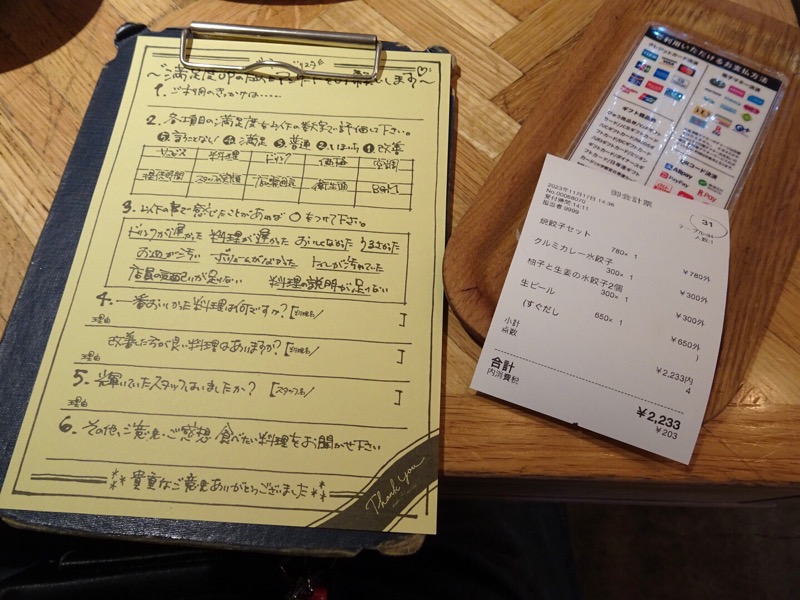 ～満足度UPの為のアンケートをお願いします～
1. ご利用のきっかけは……
2. 各項目の満足度を以下の数字で評価して下さい。
⑤言うことなし! ④満足 ③普通 ②いまいち ①改善
サービス 料理 ドリンク 価格 空調
提供時間 スタッフの笑顔 店の雰囲気 衛生面 BGM
3. 以下の事で感じたことがあれば○をつけて下さい。
ドリンクが遅かった 料理が遅かった おいしくなかった うるさかった
お皿が汚い ボリュームがなかった トイレが汚れていた
店員の気配りが足りない 料理の説明が足りない
4. 一番おいしかった料理は何ですか? [料理名/ ]
理由
改善した方が良い料理はありますか? [料理名/ ]
理由
5. 輝いていたスタッフはいましたか? [スタッフ名/ ]
理由
6. その他、ご意見・ご感想 食べたい料理をお聞かせ下さい
**貴重なご意見ありがとうございました**
Thank You
ご利用いただけるお支払方法
クレジットカード決済
電子マネー決済
ギフト商品券
QRコード決済
Alipay
PayPay
御会計票
2023年11月17日 14:36
No.00069070
受付時間 14:11
担当者 9999
31
テーブルNo.
人数:1
焼餃子セット
780× 1 ¥780外
クルミカレー水餃子
300× 1 ¥300外
柚子と生姜の水餃子2個
300× 1 ¥300外
生ビール
650× 1 ¥650外
(すぐだし )
小計 ¥2,233内
点数 4
合計 ¥2,233
内消費税 ¥203